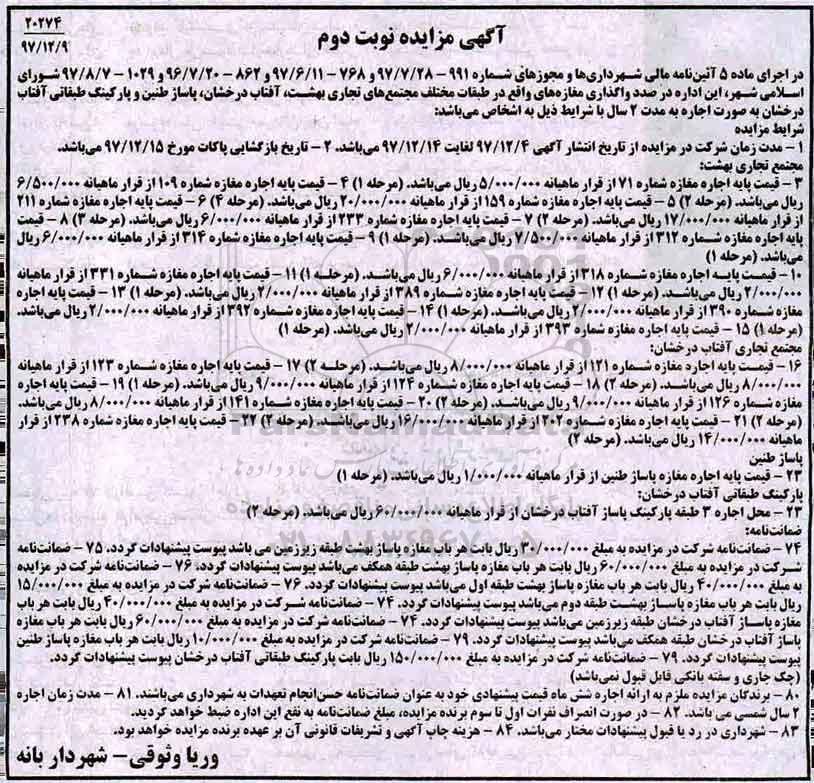 ۲۰۲۷۴
۹۷/۱۲/۹
آگهی مزایده نوبت دوم
در اجرای ماده ۵ آئین‌نامه مالی شهرداری‌ها و مجوزهای شماره ۹۹۱ - ۹۷/۷/۲۸ و ۷۶۸ - ۹۷/۶/۱۱ و ۸۶۲ - ۹۶/۷/۲۰ و ۱۰۲۹ - ۹۷/۸/۷ شورای
اسلامی شهر، این اداره در صدد واگذاری مغازه‌های واقع در طبقات مختلف مجتمع‌های تجاری بهشت، آفتاب درخشان، پاساژ طنین و پارکینگ طبقاتی آفتاب
درخشان به صورت اجاره به مدت ۲ سال با شرایط ذیل به اشخاص می‌باشد:
شرایط مزایده
۱ - مدت زمان شرکت در مزایده از تاریخ انتشار آگهی ۹۷/۱۲/۴ لغایت ۹۷/۱۲/۱۴ می‌باشد. ۲ - تاریخ بازگشایی پاکات مورخ ۹۷/۱۲/۱۵ می‌باشد.
مجتمع تجاری بهشت:
۳ - قیمت پایه اجاره مغازه شماره ۷۱ از قرار ماهیانه ۵/۰۰۰/۰۰۰ ریال می‌باشد. (مرحله ۱) ۴ - قیمت پایه اجاره مغازه شماره ۱۰۹ از قرار ماهیانه ۶/۵۰۰/۰۰۰
ریال می‌باشد. (مرحله ۲) ۵ - قیمت پایه اجاره مغازه شماره ۱۵۹ از قرار ماهیانه ۲۰/۰۰۰/۰۰۰ ریال می‌باشد. (مرحله ۴) ۶ - قیمت پایه اجاره مغازه شماره ۲۱۱
از قرار ماهیانه ۱۷/۰۰۰/۰۰۰ ریال می‌باشد. (مرحله ۲) ۷ - قیمت پایه اجاره مغازه شماره ۲۳۳ از قرار ماهیانه ۶/۰۰۰/۰۰۰ ریال می‌باشد. (مرحله ۳) ۸ - قیمت
پایه اجاره مغازه شماره ۳۱۲ از قرار ماهیانه ۷/۵۰۰/۰۰۰ ریال می‌باشد. (مرحله ۱) ۹ - قیمت پایه اجاره مغازه شماره ۳۱۴ از قرار ماهیانه ۶/۰۰۰/۰۰۰ ریال
می‌باشد. (مرحله ۱)
۱۰ - قیمت پایه اجاره مغازه شماره ۳۱۸ از قرار ماهیانه ۶/۰۰۰/۰۰۰ ریال می‌باشد. (مرحله ۱) ۱۱ - قیمت پایه اجاره مغازه شماره ۳۳۱ از قرار ماهیانه
۲/۰۰۰/۰۰۰ ریال می‌باشد. (مرحله ۱) ۱۲ - قیمت پایه اجاره مغازه شماره ۳۸۹ از قرار ماهیانه ۲/۰۰۰/۰۰۰ ریال می‌باشد. (مرحله ۱) ۱۳ - قیمت پایه اجاره
مغازه شماره ۳۹۰ از قرار ماهیانه ۲/۰۰۰/۰۰۰ ریال می‌باشد. (مرحله ۱) ۱۴ - قیمت پایه اجاره مغازه شماره ۳۹۲ از قرار ماهیانه ۲/۰۰۰/۰۰۰ ریال می‌باشد.
(مرحله ۱) ۱۵ - قیمت پایه اجاره مغازه شماره ۳۹۳ از قرار ماهیانه ۲/۰۰۰/۰۰۰ ریال می‌باشد. (مرحله ۱)
مجتمع تجاری آفتاب درخشان:
۱۶ - قیمت پایه اجاره مغازه شماره ۱۲۱ از قرار ماهیانه ۸/۰۰۰/۰۰۰ ریال می‌باشد. (مرحله ۲) ۱۷ - قیمت پایه اجاره مغازه شماره ۱۲۳ از قرار ماهیانه
۸/۰۰۰/۰۰۰ ریال می‌باشد. (مرحله ۲) ۱۸ - قیمت پایه اجاره مغازه شماره ۱۲۴ از قرار ماهیانه ۹/۰۰۰/۰۰۰ ریال می‌باشد. (مرحله ۱) ۱۹ - قیمت پایه اجاره
مغازه شماره ۱۲۶ از قرار ماهیانه ۹/۰۰۰/۰۰۰ ریال می‌باشد. (مرحله ۲) ۲۰ - قیمت پایه اجاره مغازه شماره ۱۴۱ از قرار ماهیانه ۸/۰۰۰/۰۰۰ ریال می‌باشد.
(مرحله ۲) ۲۱ - قیمت پایه اجاره مغازه شماره ۲۰۲ از قرار ماهیانه ۱۶/۰۰۰/۰۰۰ ریال می‌باشد. (مرحله ۲) ۲۲ - قیمت پایه اجاره مغازه شماره ۲۳۸ از قرار
ماهیانه ۱۴/۰۰۰/۰۰۰ ریال می‌باشد. (مرحله ۲)
پاساژ طنین
۲۳ - قیمت پایه اجاره مغازه پاساژ طنین از قرار ماهیانه ۱/۰۰۰/۰۰۰ ریال می‌باشد. (مرحله ۱)
پارکینگ طبقاتی آفتاب درخشان:
۲۳ - محل اجاره ۳ طبقه پارکینگ پاساژ آفتاب درخشان از قرار ماهیانه ۶۰/۰۰۰/۰۰۰ ریال می‌باشد. (مرحله ۲)
ضمانت‌نامه:
۷۴ - ضمانت‌نامه شرکت در مزایده به مبلغ ۳۰/۰۰۰/۰۰۰ ریال بابت هر باب مغازه پاساژ بهشت طبقه زیرزمین می باشد پیوست پیشنهادات گردد. ۷۵ - ضمانت‌نامه
شرکت در مزایده به مبلغ ۶۰/۰۰۰/۰۰۰ ریال بابت هر باب مغازه پاساژ بهشت طبقه همکف می‌باشد پیوست پیشنهادات گردد. ۷۶ - ضمانت‌نامه شرکت در مزایده
به مبلغ ۴۰/۰۰۰/۰۰۰ ریال بابت هر باب مغازه پاساژ بهشت طبقه اول می‌باشد پیوست پیشنهادات گردد. ۷۶ - ضمانت‌نامه شرکت در مزایده به مبلغ ۱۵/۰۰۰/۰۰۰
ریال بابت هر باب مغازه پاساژ بهشت طبقه دوم می‌باشد پیوست پیشنهادات گردد. ۷۴ - ضمانت‌نامه شرکت در مزایده به مبلغ ۴۰/۰۰۰/۰۰۰ ریال بابت هر باب
مغازه پاساژ آفتاب درخشان طبقه زیرزمین می‌باشد پیوست پیشنهادات گردد. ۷۴ - ضمانت‌نامه شرکت در مزایده به مبلغ ۶۰/۰۰۰/۰۰۰ ریال بابت هر باب مغازه
پاساژ آفتاب درخشان طبقه همکف می‌باشد پیوست پیشنهادات گردد. ۷۹ - ضمانت‌نامه شرکت در مزایده به مبلغ ۱۰/۰۰۰/۰۰۰ ریال بابت هر باب مغازه پاساژ طنین
پیوست پیشنهادات گردد. ۷۹ - ضمانت‌نامه شرکت در مزایده به مبلغ ۱۵۰/۰۰۰/۰۰۰ ریال بابت پارکینگ طبقاتی آفتاب درخشان پیوست پیشنهادات گردد.
(چک جاری و سفته بانکی قابل قبول نمی‌باشد)
۸۰ - برندگان مزایده ملزم به ارائه اجاره شش ماه قیمت پیشنهادی خود به عنوان ضمانت‌نامه حسن‌انجام تعهدات به شهرداری می‌باشند. ۸۱ - مدت زمان اجاره
۲ سال شمسی می باشد. ۸۲ - در صورت انصراف نفرات اول تا سوم برنده مزایده، مبلغ ضمانت‌نامه به نفع این اداره ضبط خواهد گردید.
۸۳ - شهرداری در رد یا قبول پیشنهادات مختار می‌باشد. ۸۴ - هزینه چاپ آگهی و تشریفات قانونی آن بر عهده برنده مزایده خواهد بود.
وریا وثوقی - شهردار بانه